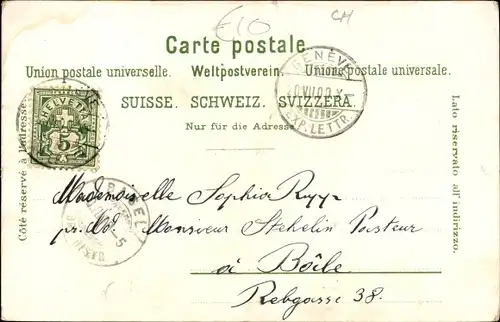 £10
CH
Carte postale.
Union postale universelle. Weltpostverein. Unione postale universale.
SUISSE. SCHWEIZ. SVIZZERA.
Nur für die Adresse.
Côté réservé à l'adresse.
Lato riservato all' indirizzo.
HELVETIA
5
GENÈVE
EXP. LETTR.
BASEL
Mademoiselle Sophie Rupp
pr. Ad. Monsieur Stehelin Pasteur
à Bâle
Rebgasse 38.